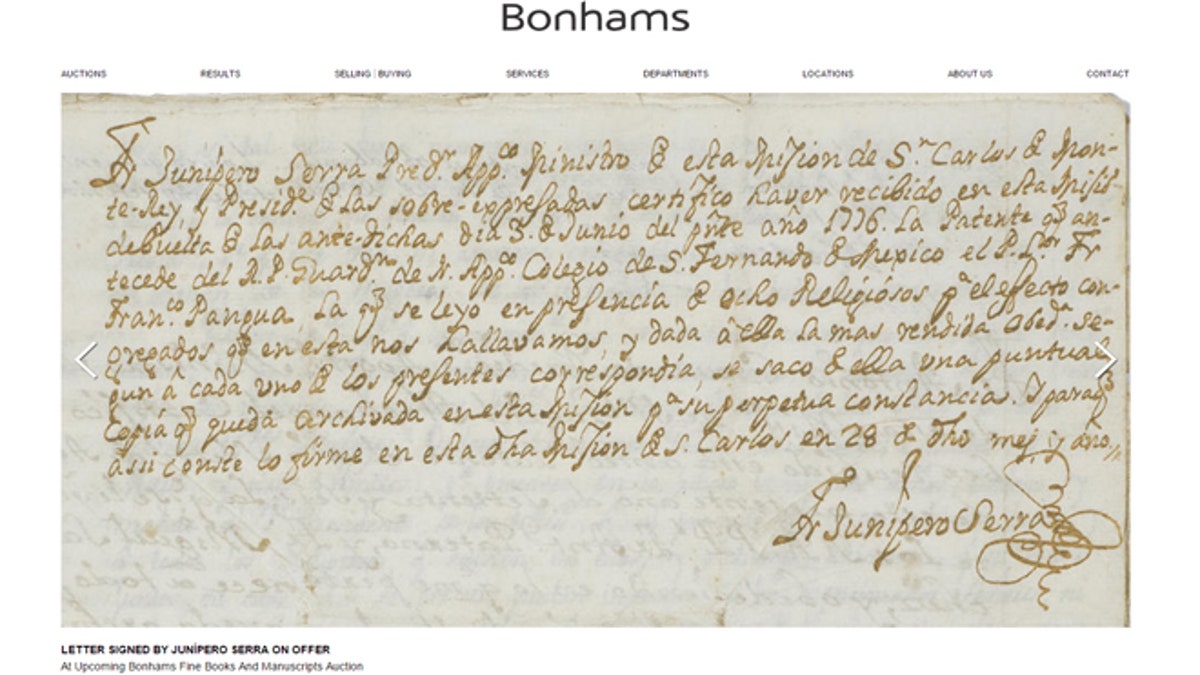 Bonhams
AUCTIONS RESULTS SELLING | BUYING SERVICES DEPARTMENTS LOCATIONS ABOUT US CONTACT
Fr Junípero Serra Pred.r App.co Ministro de esta Mission de S.n Carlos de Mon-
te-Rey, y Presid.e de las sobre-expresadas certifico haver recibido en esta
debuelta de las ante-dichas dia 3 de Junio del pñte año 1776. La Patente q̃ an-
tecede del R. P. Guard.n de N. App.co Colegio de S. Fernando de Mexico el P. Fr
Fran.co Pangua. La q̃ se leyo en presencia de ocho Religiosos p.a el efecto con-
gregados q̃ en esta nos hallavamos, y dada â ella la mas rendida obed.a se-
gun â cada uno de los presentes correspondia, se saco de ella una puntual
Copia q̃ queda archivada en esta Mission p.a su perpetua constancia. Y paraq̃
assi conste lo firme en esta dha Mission de S. Carlos en 28 de dho mes, y año,
Fr Junípero Serra
LETTER SIGNED BY JUNÍPERO SERRA ON OFFER
At Upcoming Bonhams Fine Books And Manuscripts Auction